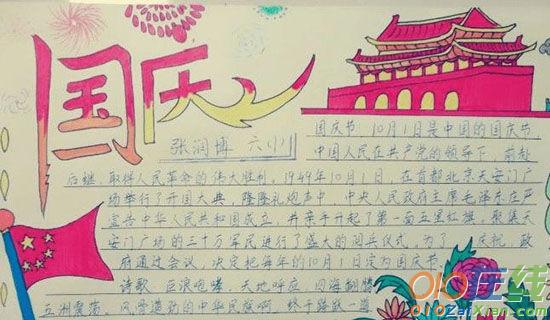 国庆
张润博 六(1)
国庆节，10月1日是中国的国庆节，
中国人民在共产党的领导下，前赴
后继，取得人民革命的伟大胜利，1949年10月1日，在首都北京天安门广
场举行了开国大典，隆隆礼炮声中，中央人民政府主席毛泽东庄严
宣告中华人民共和国成立，并亲手升起了第一面五星红旗，聚集天
安门广场的三十万军民进行了盛大的阅兵仪式，为了庆祝，政
府通过会议，决定把每年的10月1日定为国庆节。
诗歌：巨浪咆哮，天地呼应，四海翻腾
五洲震荡，风雪遮劲的中华民族啊，终于踏破一道
在线
ZaiXian.com